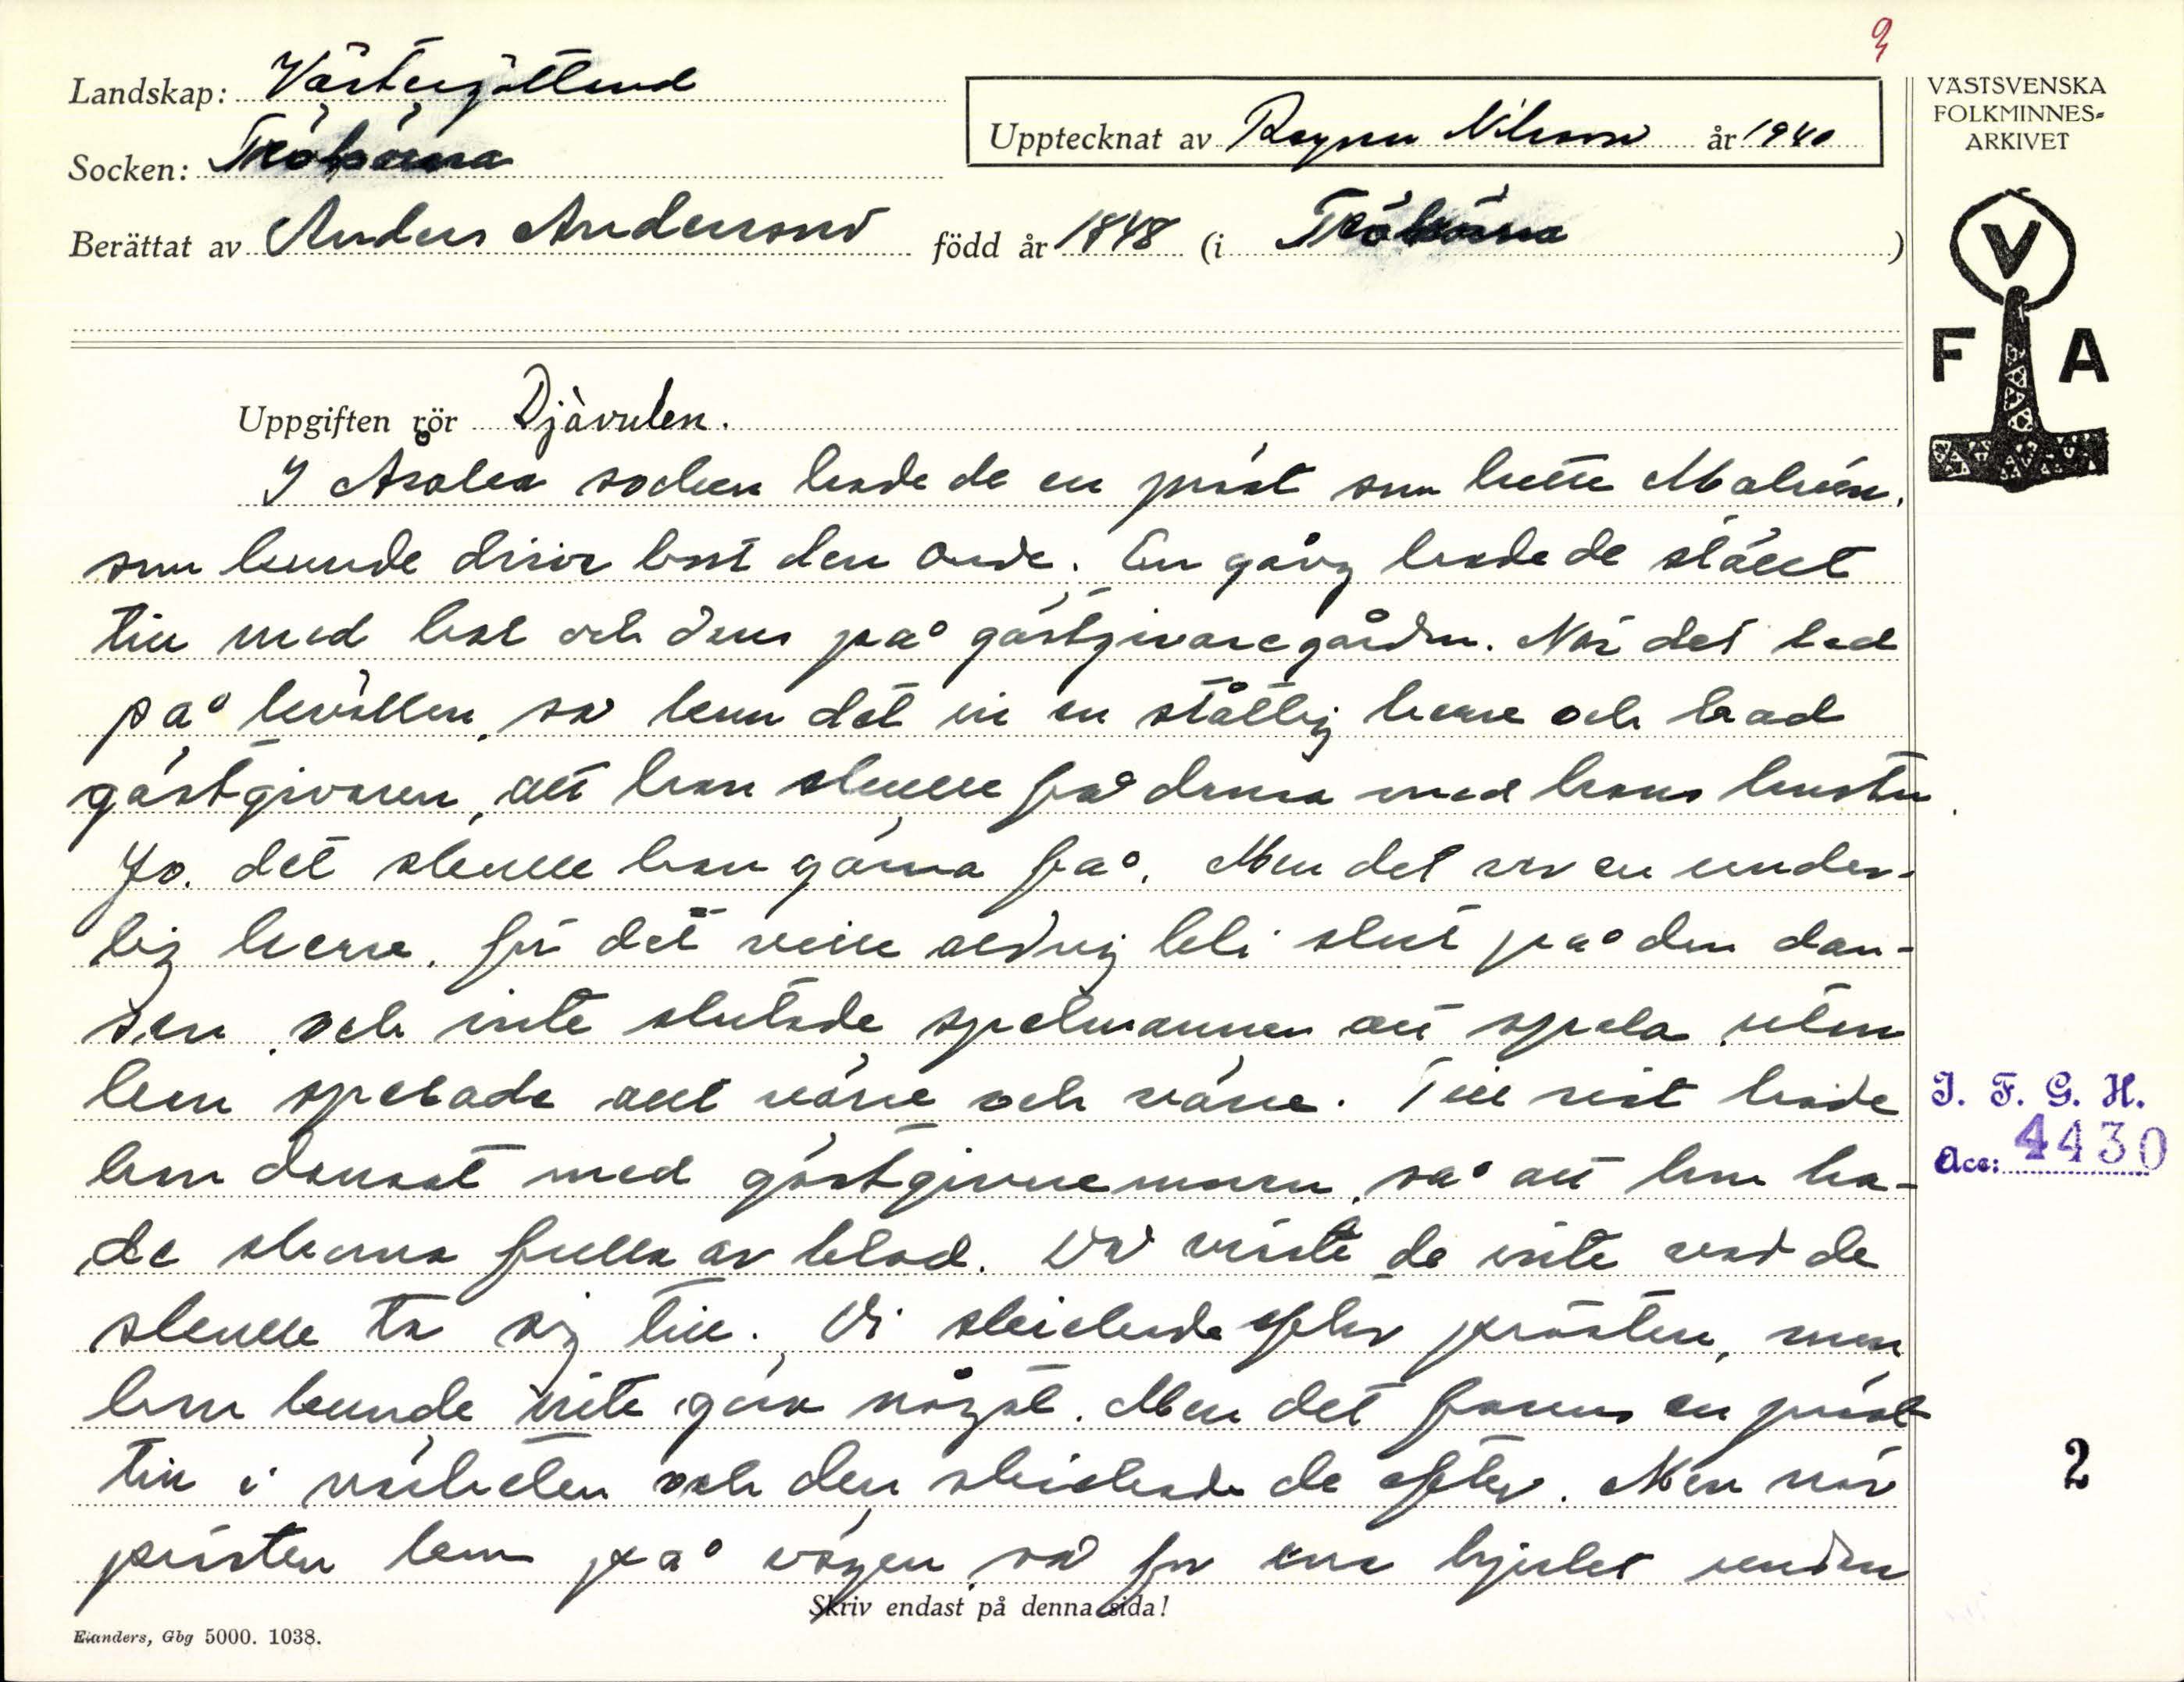 3
Landskap: Västergötland
Socken: Tråkärna
Upptecknat av Ragnar Nilsson år 1940
Berättat av Anders Andersson född år 1848 (i Tråkärna)
VÄSTSVENSKA
FOLKMINNES-
ARKIVET
V
F A
Uppgiften rör Djävulen.
I Åsaka socken hade de en präst som hette Malmén,
som kunde driva bort den Onde. En gång hade de ställt
till med kal och dans på gästgivaregården. När det led
på kvällen, så kom det in en ståtlig herre och bad
gästgivaren, att han skulle få dansa med hans hustru.
Jo. det skulle han gärna få. Men det var en under-
lig herre, för det ville aldrig bli slut på den dan-
sen, och inte slutade spelmannen att spela, utan
han spelade allt värre och värre. Till sist hade
han dansat med gästgivaremoran, så att hon ha-
de skorna fulla av blod. Då visste de inte vad de
skulle ta sig till. Di skickade efter prästen, men
han kunde inte göra något. Men det fanns en präst
till i närheten och den skickade de efter. Men när
prästen kom på vägen, så for ena hjulet undan
Skriv endast på denna sida!
Elanders, Gbg 5000. 1038.
I. F. G. H.
Acc: 4430
2